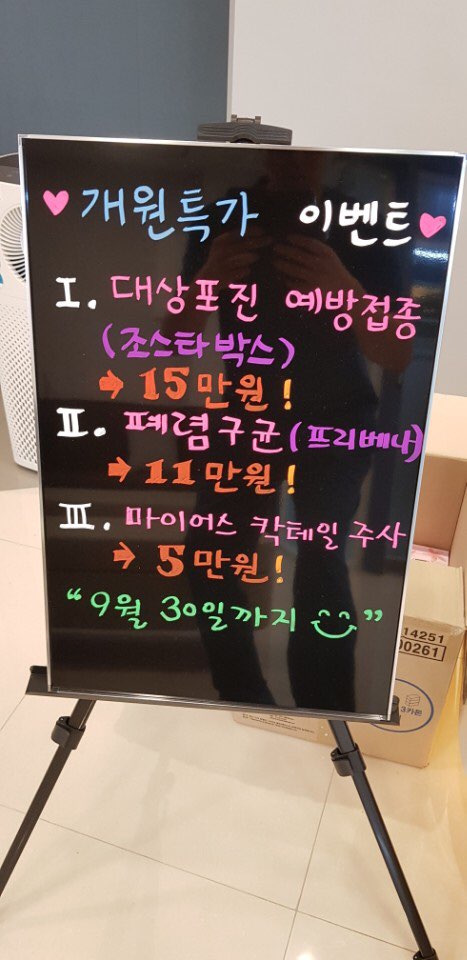 ♥ 개원특가 이벤트 ♥
I. 대상포진 예방접종
(조스타박스)
→ 15만원!
II. 폐렴구균 (프리베나)
→ 11만원!
III. 마이어스 칵테일 주사
→ 5만원!
“9월 30일까지 ”
14251
00261